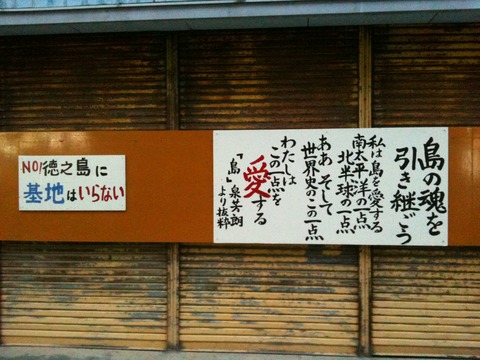 NO!徳之島に
基地はいらない
島の魂を
引き継ごう
私は島を愛する
南太平洋の一点
北半球の一点
ああ そして
世界史のこの一点
わたしは
この一点を
愛する
「島」泉芳朗
より抜粋